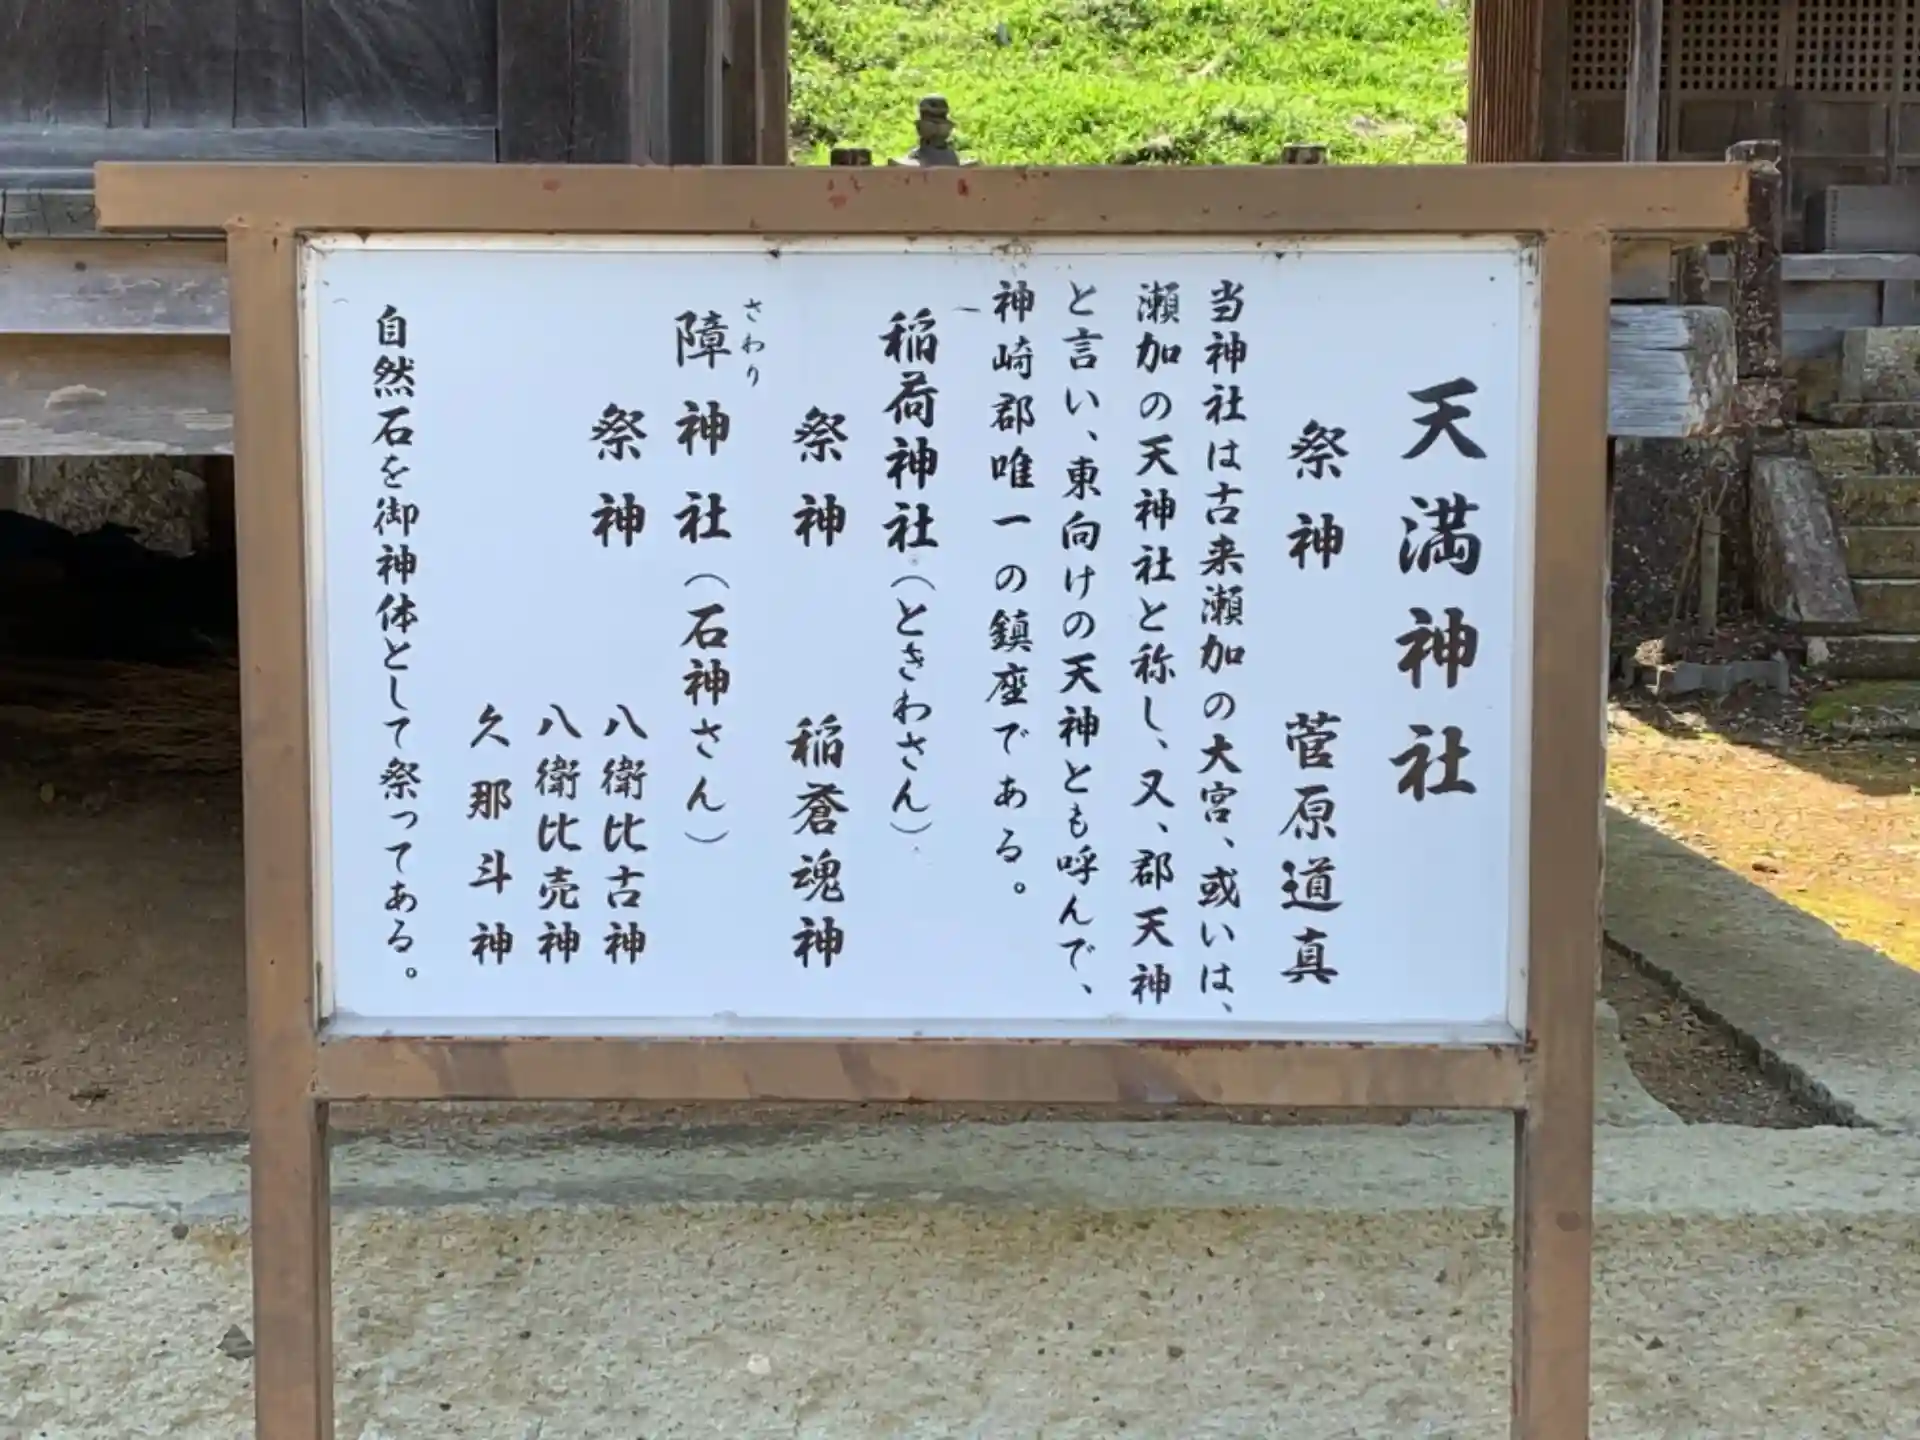 天満神社
祭神 菅原道真
当神社は古来瀬加の大宮、或いは、
瀬加の天神社と称し、又、郡天神
と言い、東向けの天神とも呼んで、
神崎郡唯一の鎮座である。
稲荷神社（ときわさん）
祭神 稲蒼魂神
さわり
障神社（石神さん）
祭神 八衛比古神
八衛比売神
久那斗神
自然石を御神体として祭ってある。